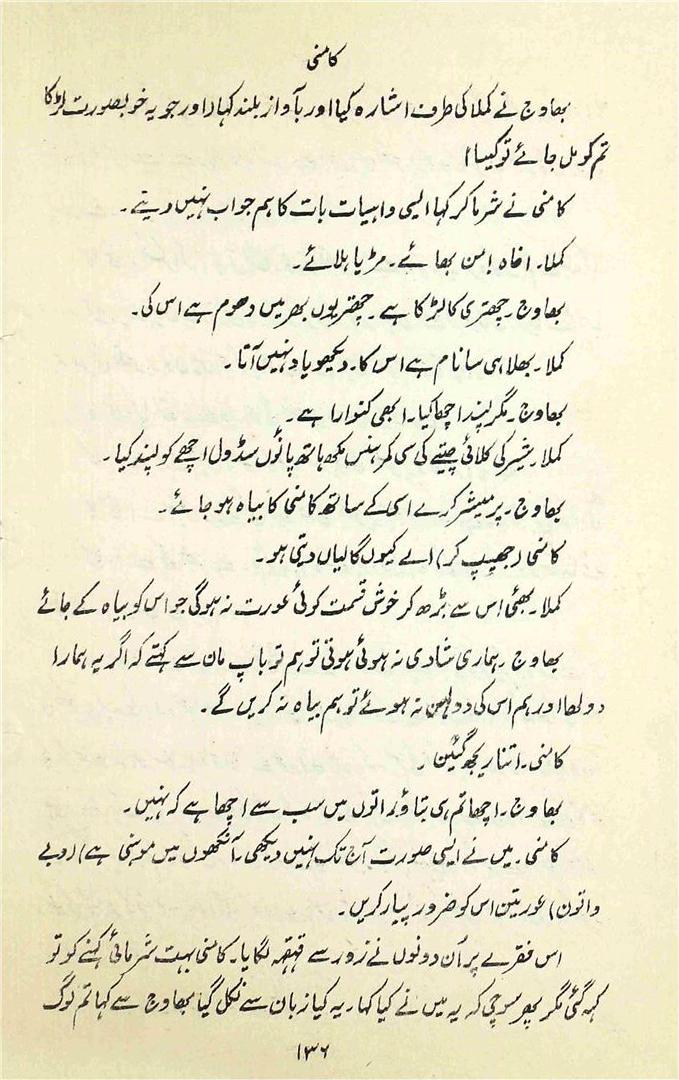 کامنی
بھاوج نے کملا کی طرف اشارہ کیا اور بآواز بلند کہا (اور جو یہ خوبصورت لڑکا
تم کو مل جائے تو کیسا)
کامنی نے شرما کر کہا ایسی واہیات بات کا ہم جواب نہیں دیتے۔
کملا۔ اخاہ امن بھائے۔ مڑیا ہلائے۔
بھاوج۔ چھتری کا لڑکا ہے۔ چھتریوں بھر میں دھوم ہے اس کی۔
کملا۔ بھلا ہی سا نام ہے اس کا۔ دیکھو یاد نہیں آتا۔
بھاوج۔ مگر پسند اچھا کیا۔ ابھی کنوارا ہے۔
کملا۔ شیر کی کلائی چیتے کی سی کمر ہنس مکھ ہاتھ پائوں سڈول اچھے کو پسند کیا۔
بھاوج۔ پرمیشر کرے اسی کے ساتھ کامنی کا بیاہ ہو جائے۔
کامنی (جھیپ کر) اے کیوں گالیاں دیتی ہو۔
کملا۔ بھئی اس سے بڑھ کر خوش قسمت کوئی عورت نہ ہوگی جو اس کو بیاہ کے جائے
بھاوج۔ ہماری شادی نہ ہوئی ہوتی تو ہم تو باپ مان سے کہتے کہ اگر یہ ہمارا
دولھا اور ہم اس کی دولہن نہ ہوئے تو ہم بیاہ نہ کریں گے۔
کامنی۔ اتنا ریجھ گئیں۔
بھاوج۔ اچھا تم ہی بتاؤ راتوں میں سب سے اچھا ہے کہ نہیں۔
کامنی۔ میں نے ایسی صورت آج تک نہیں دیکھی۔ آنکھوں میں موہنی ہے) (روپے
واتون) عورتین اس کو ضرور پیار کریں۔
اس فقرے پر اُن دونوں نے زور سے قہقہہ لگایا۔ کامنی بہت شرمائی کہنے کو تو
کہہ گئی مگر پھر سوچی کہ یہ میں نے کیا کہا۔ یہ کیا زبان سے نکل گیا بھاوج سے کہا تم لوگ
۱۳۶